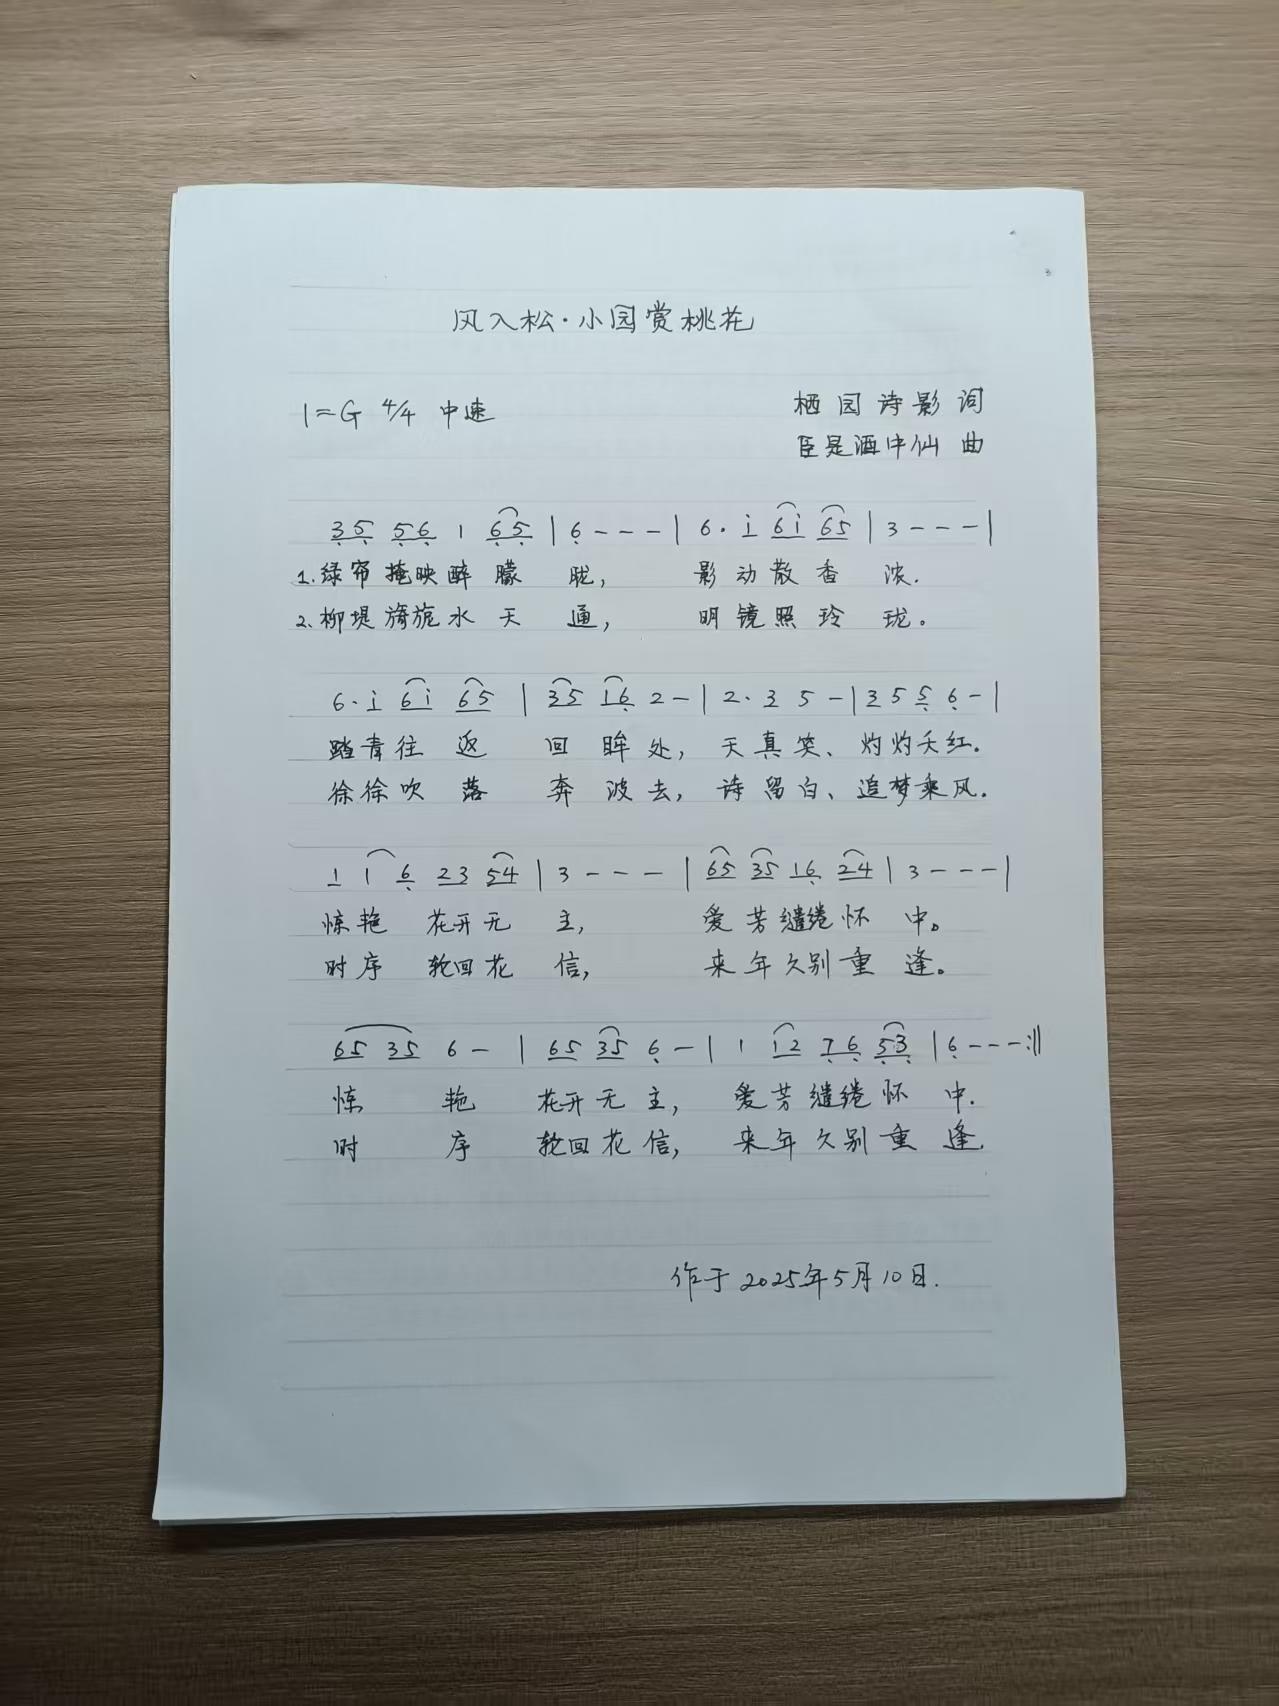 风入松·小园赏桃花
1=G 4/4 中速
栖园诗影 词
臣是酒中仙 曲
3̣5̣ 5̣6̣ 1 6̣5̣ | 6̣ - - - | 6· i 6i 65 | 3 - - - |
1.绿帘掩映醉朦胧, 影动散香浓.
2.柳堤旖旎水天通, 明镜照玲珑。
6· i 6i 65 | 35 16̣ 2 - | 2· 3 5 - | 3 5 5̣ 6̣ - |
踏青往返回眸处, 天真笑、灼灼夭红.
徐徐吹落奔波去, 诗留白、追梦乘风.
1 1 6̣ 23 54 | 3 - - - | 65 35 16̣ 24 | 3 - - - |
惊艳花开无主, 爱芳缱绻怀中。
时序轮回花信, 来年久别重逢。
65 35 6 - | 65 35 6̣ - | 1 12 7̣6̣ 5̣3̣ | 6̣ - - - :‖
惊艳花开无主, 爱芳缱绻怀中.
时序轮回花信, 来年久别重逢.
作于2025年5月10日.